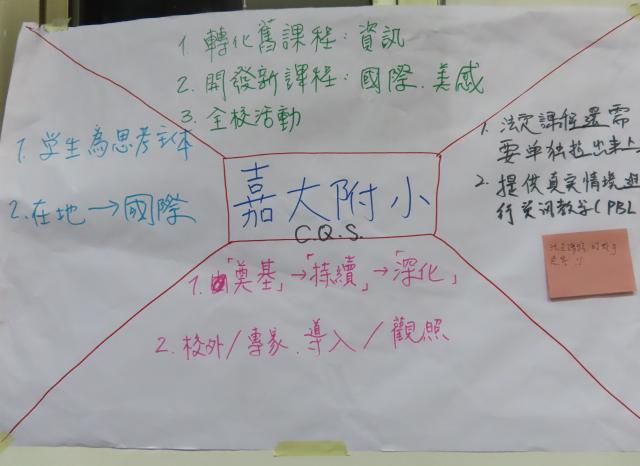 1. 轉化舊課程：資訊
2. 開發新課程：國際.美感
3. 全校活動
1. 学生為思考主体
2. 在地→國際
嘉大附小
C.Q.S.
1. 法定課程還需
要单独拉出来上
2. 提供真实情境進
行資訊教学(PBL
1. 由「奠基」→「持續」→「深化」
2. 校外/專家.導入/觀照